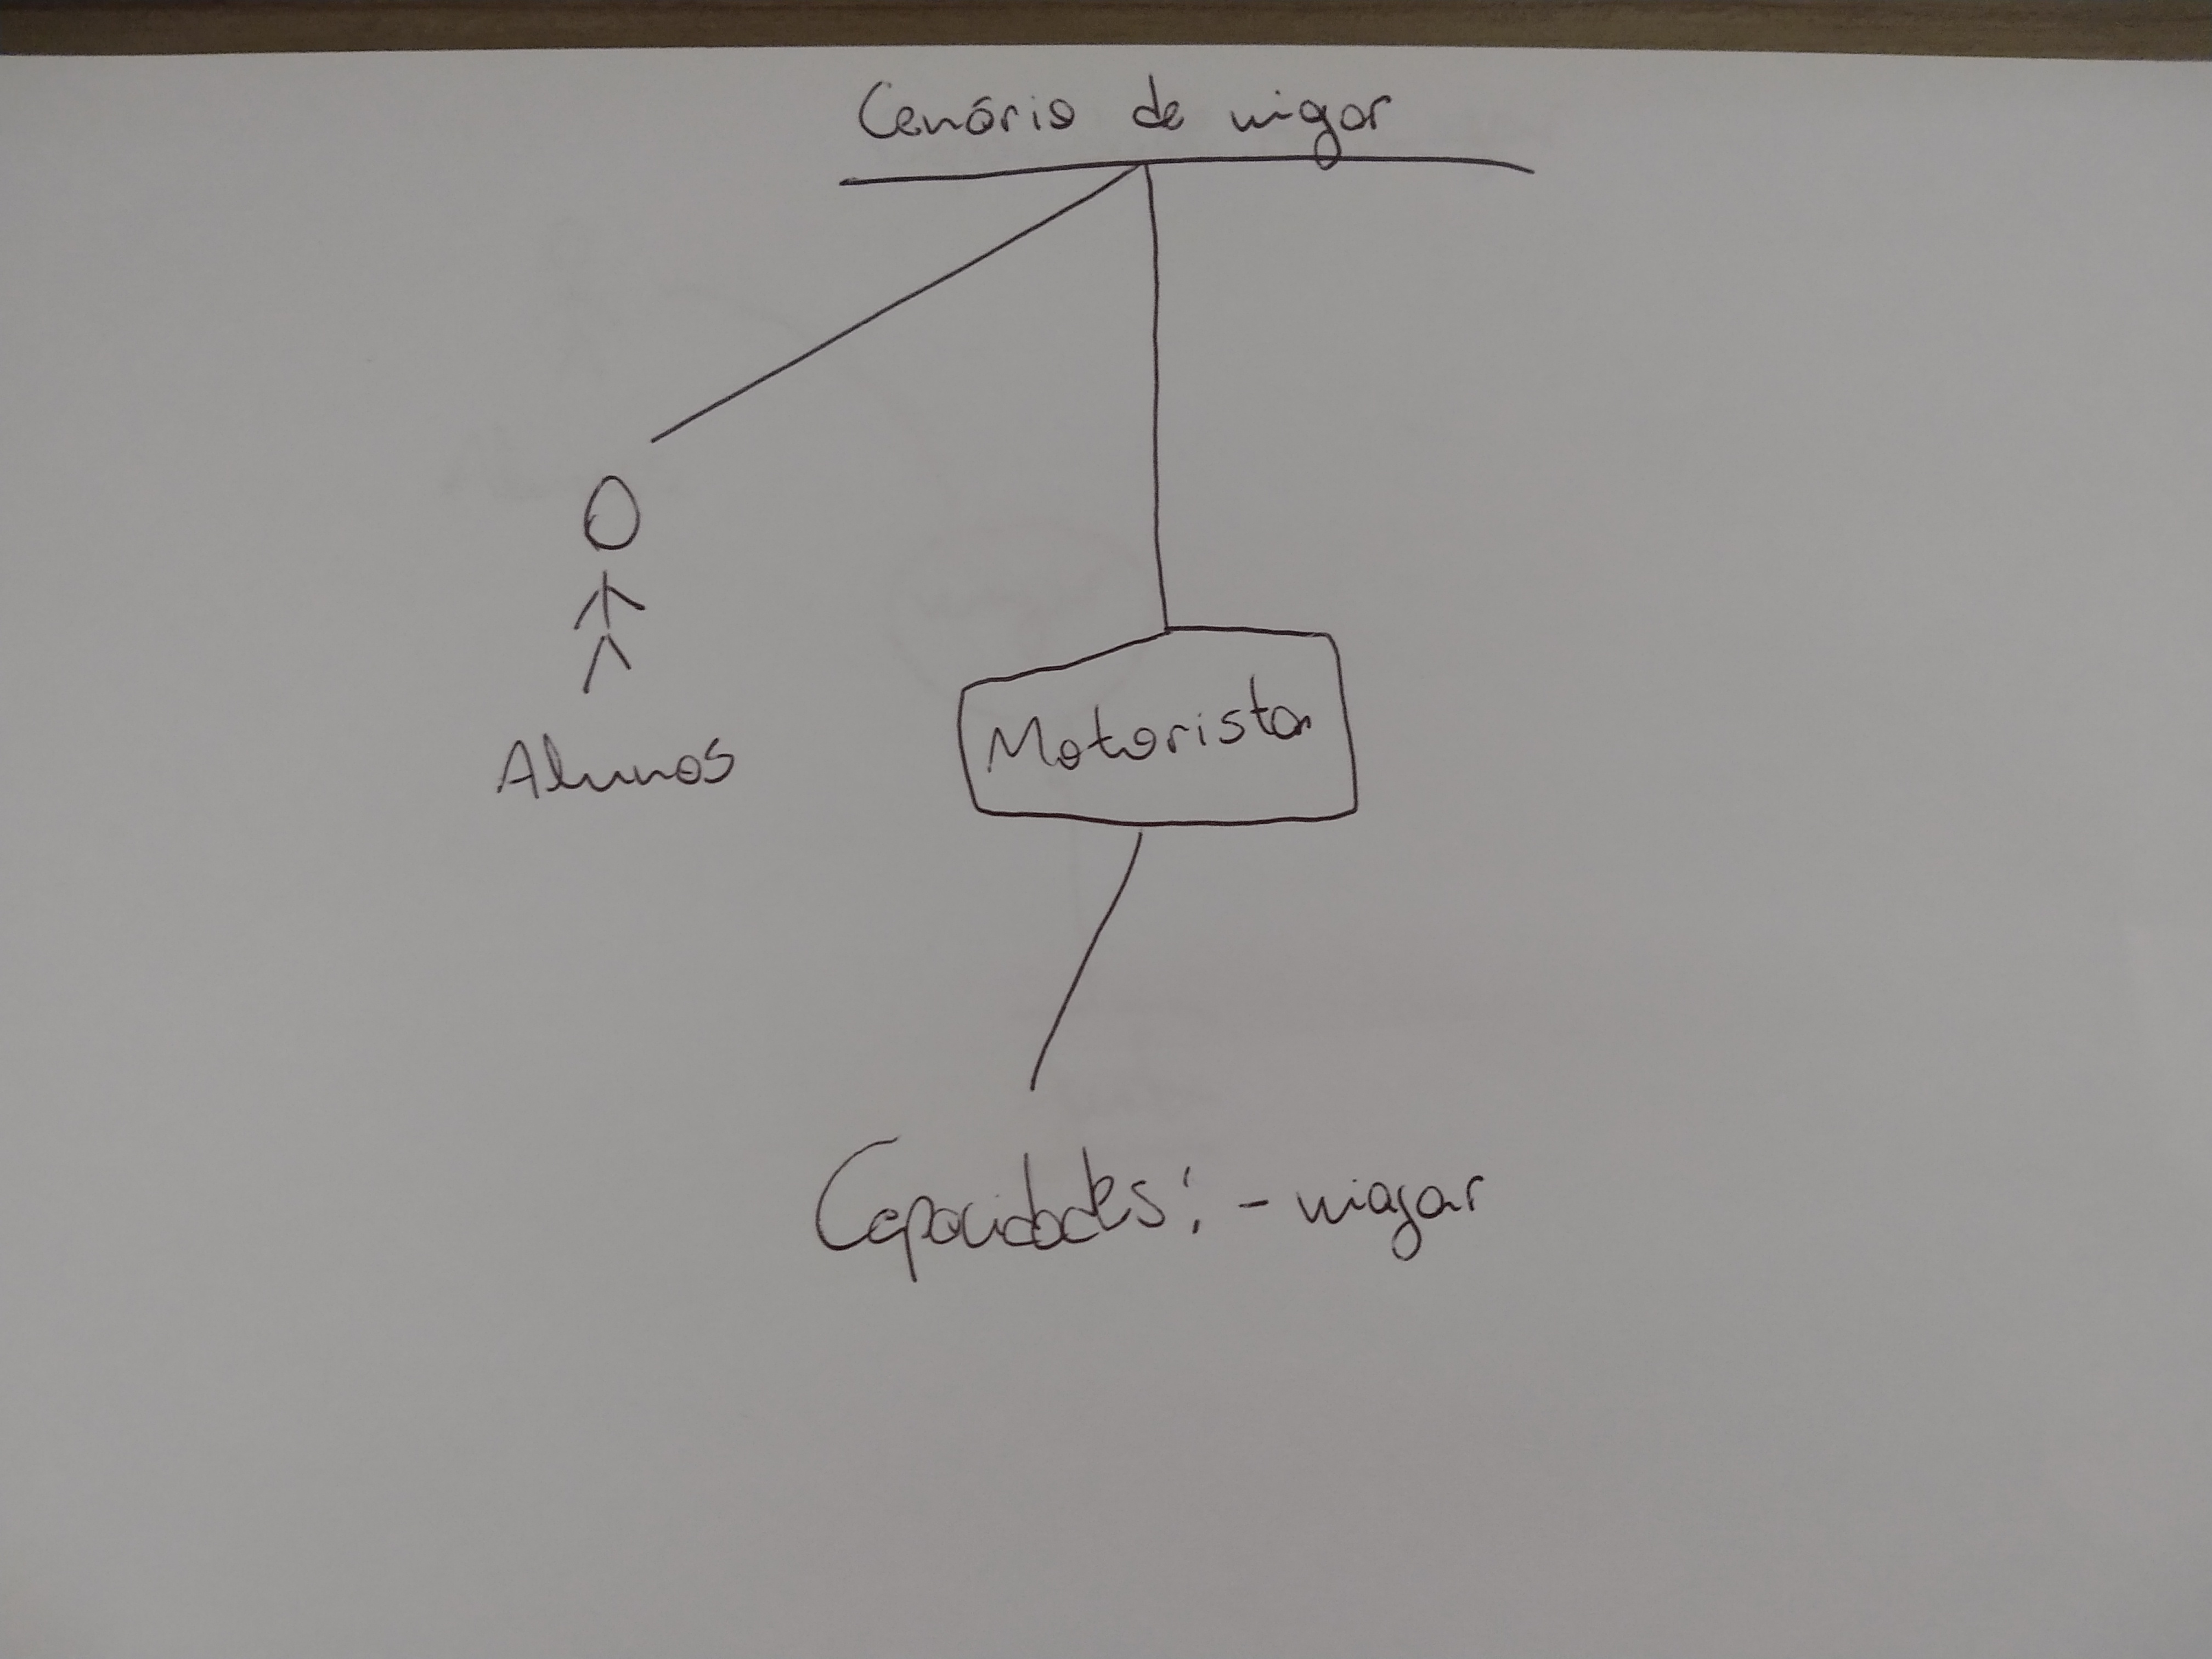 Cenário de viajar
Alunos
Motorista
Capacidades: - viajar